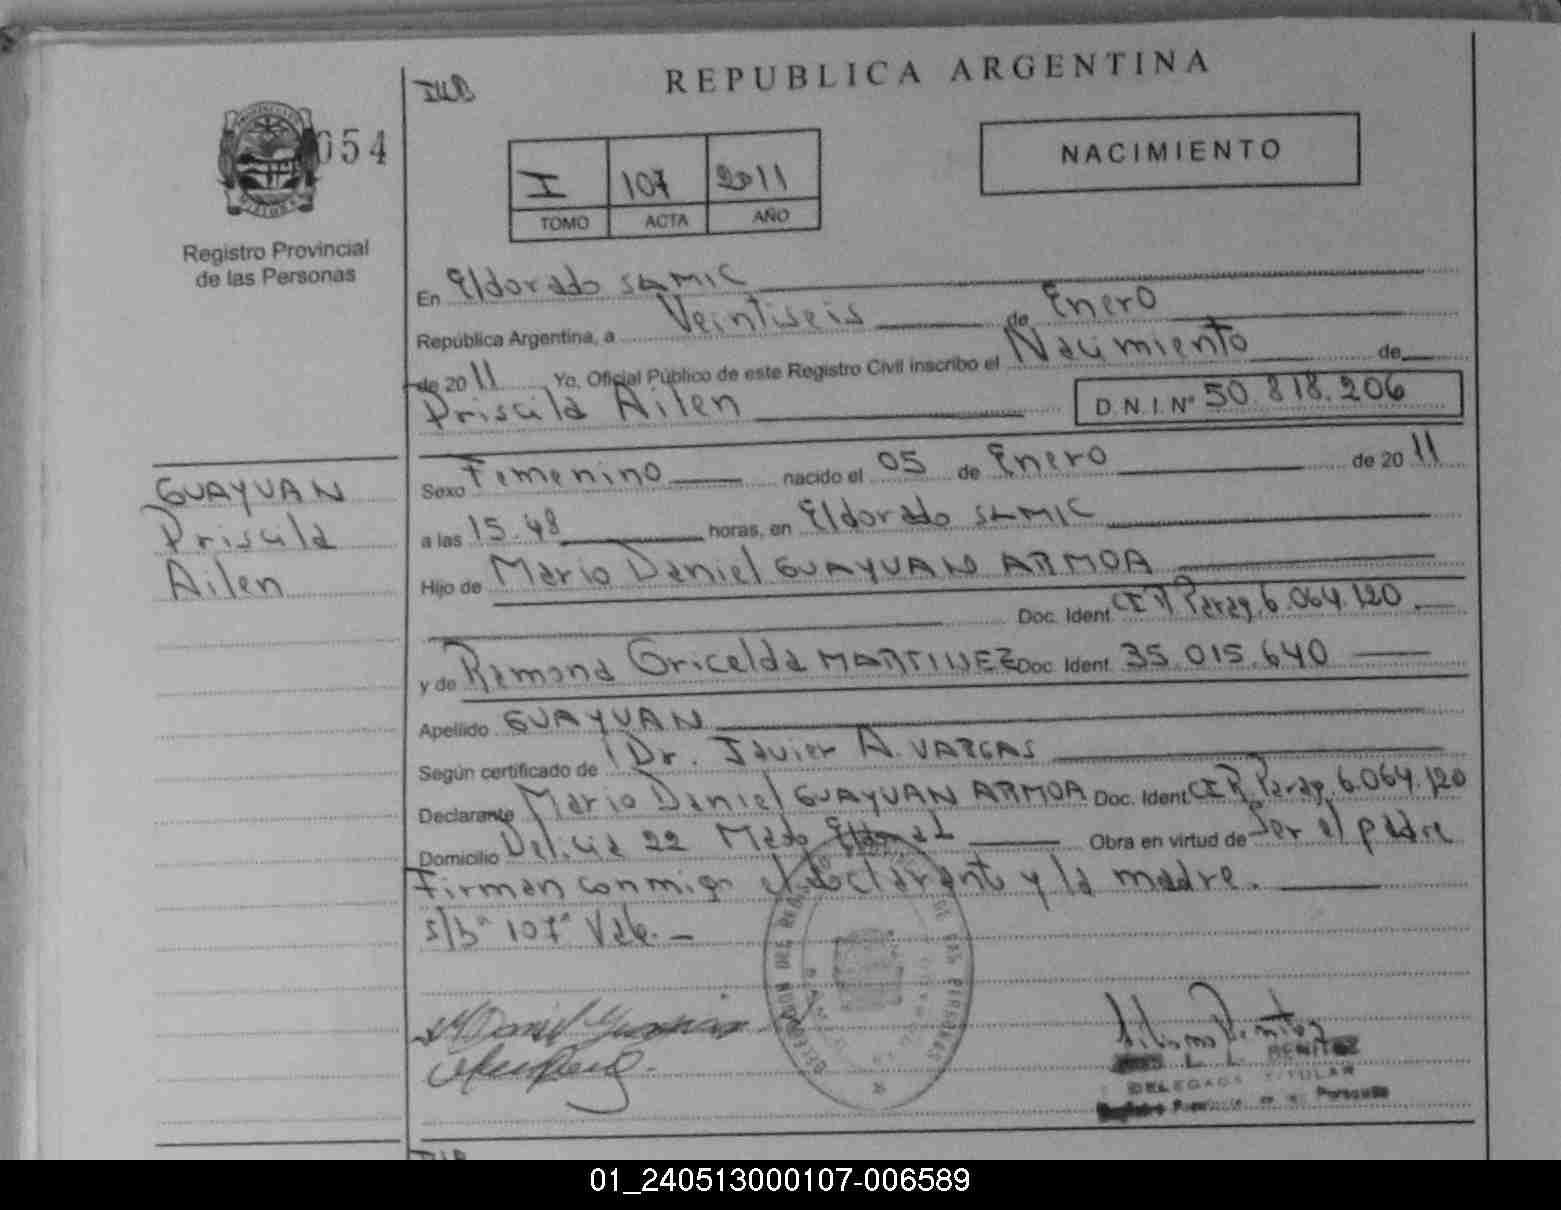 REPUBLICA ARGENTINA
054
Registro Provincial
de las Personas
I 107 2011
TOMO ACTA AÑO
NACIMIENTO
En Eldorado SAMIC
República Argentina, a Veintiseis de Enero
de 2011 Yo, Oficial Público de este Registro Civil inscribo el Nacimiento de
Priscila Ailen D.N.I. Nº 50.818.206
GUAYUAN
Priscila
Ailen
Sexo Femenino nacido el 05 de Enero de 2011
a las 15.48 horas, en Eldorado SAMIC
Hijo de Mario Daniel GUAYUAN ARMOA
Doc. Ident. CI Parag. 6.064.120
y de Ramona Gricelda MARTINEZ Doc. Ident. 35.015.640
Apellido GUAYUAN
Según certificado de Dr. Javier A. VARGAS
Declarante Mario Daniel GUAYUAN ARMOA Doc. Ident. CI Parag. 6.064.120
Domicilio Delicia 22 Obra en virtud de Ser el padre
Firman conmigo el declarante y la madre.
107 Vale.
BENITEZ
DELEGADA TITULAR
01_240513000107-006589